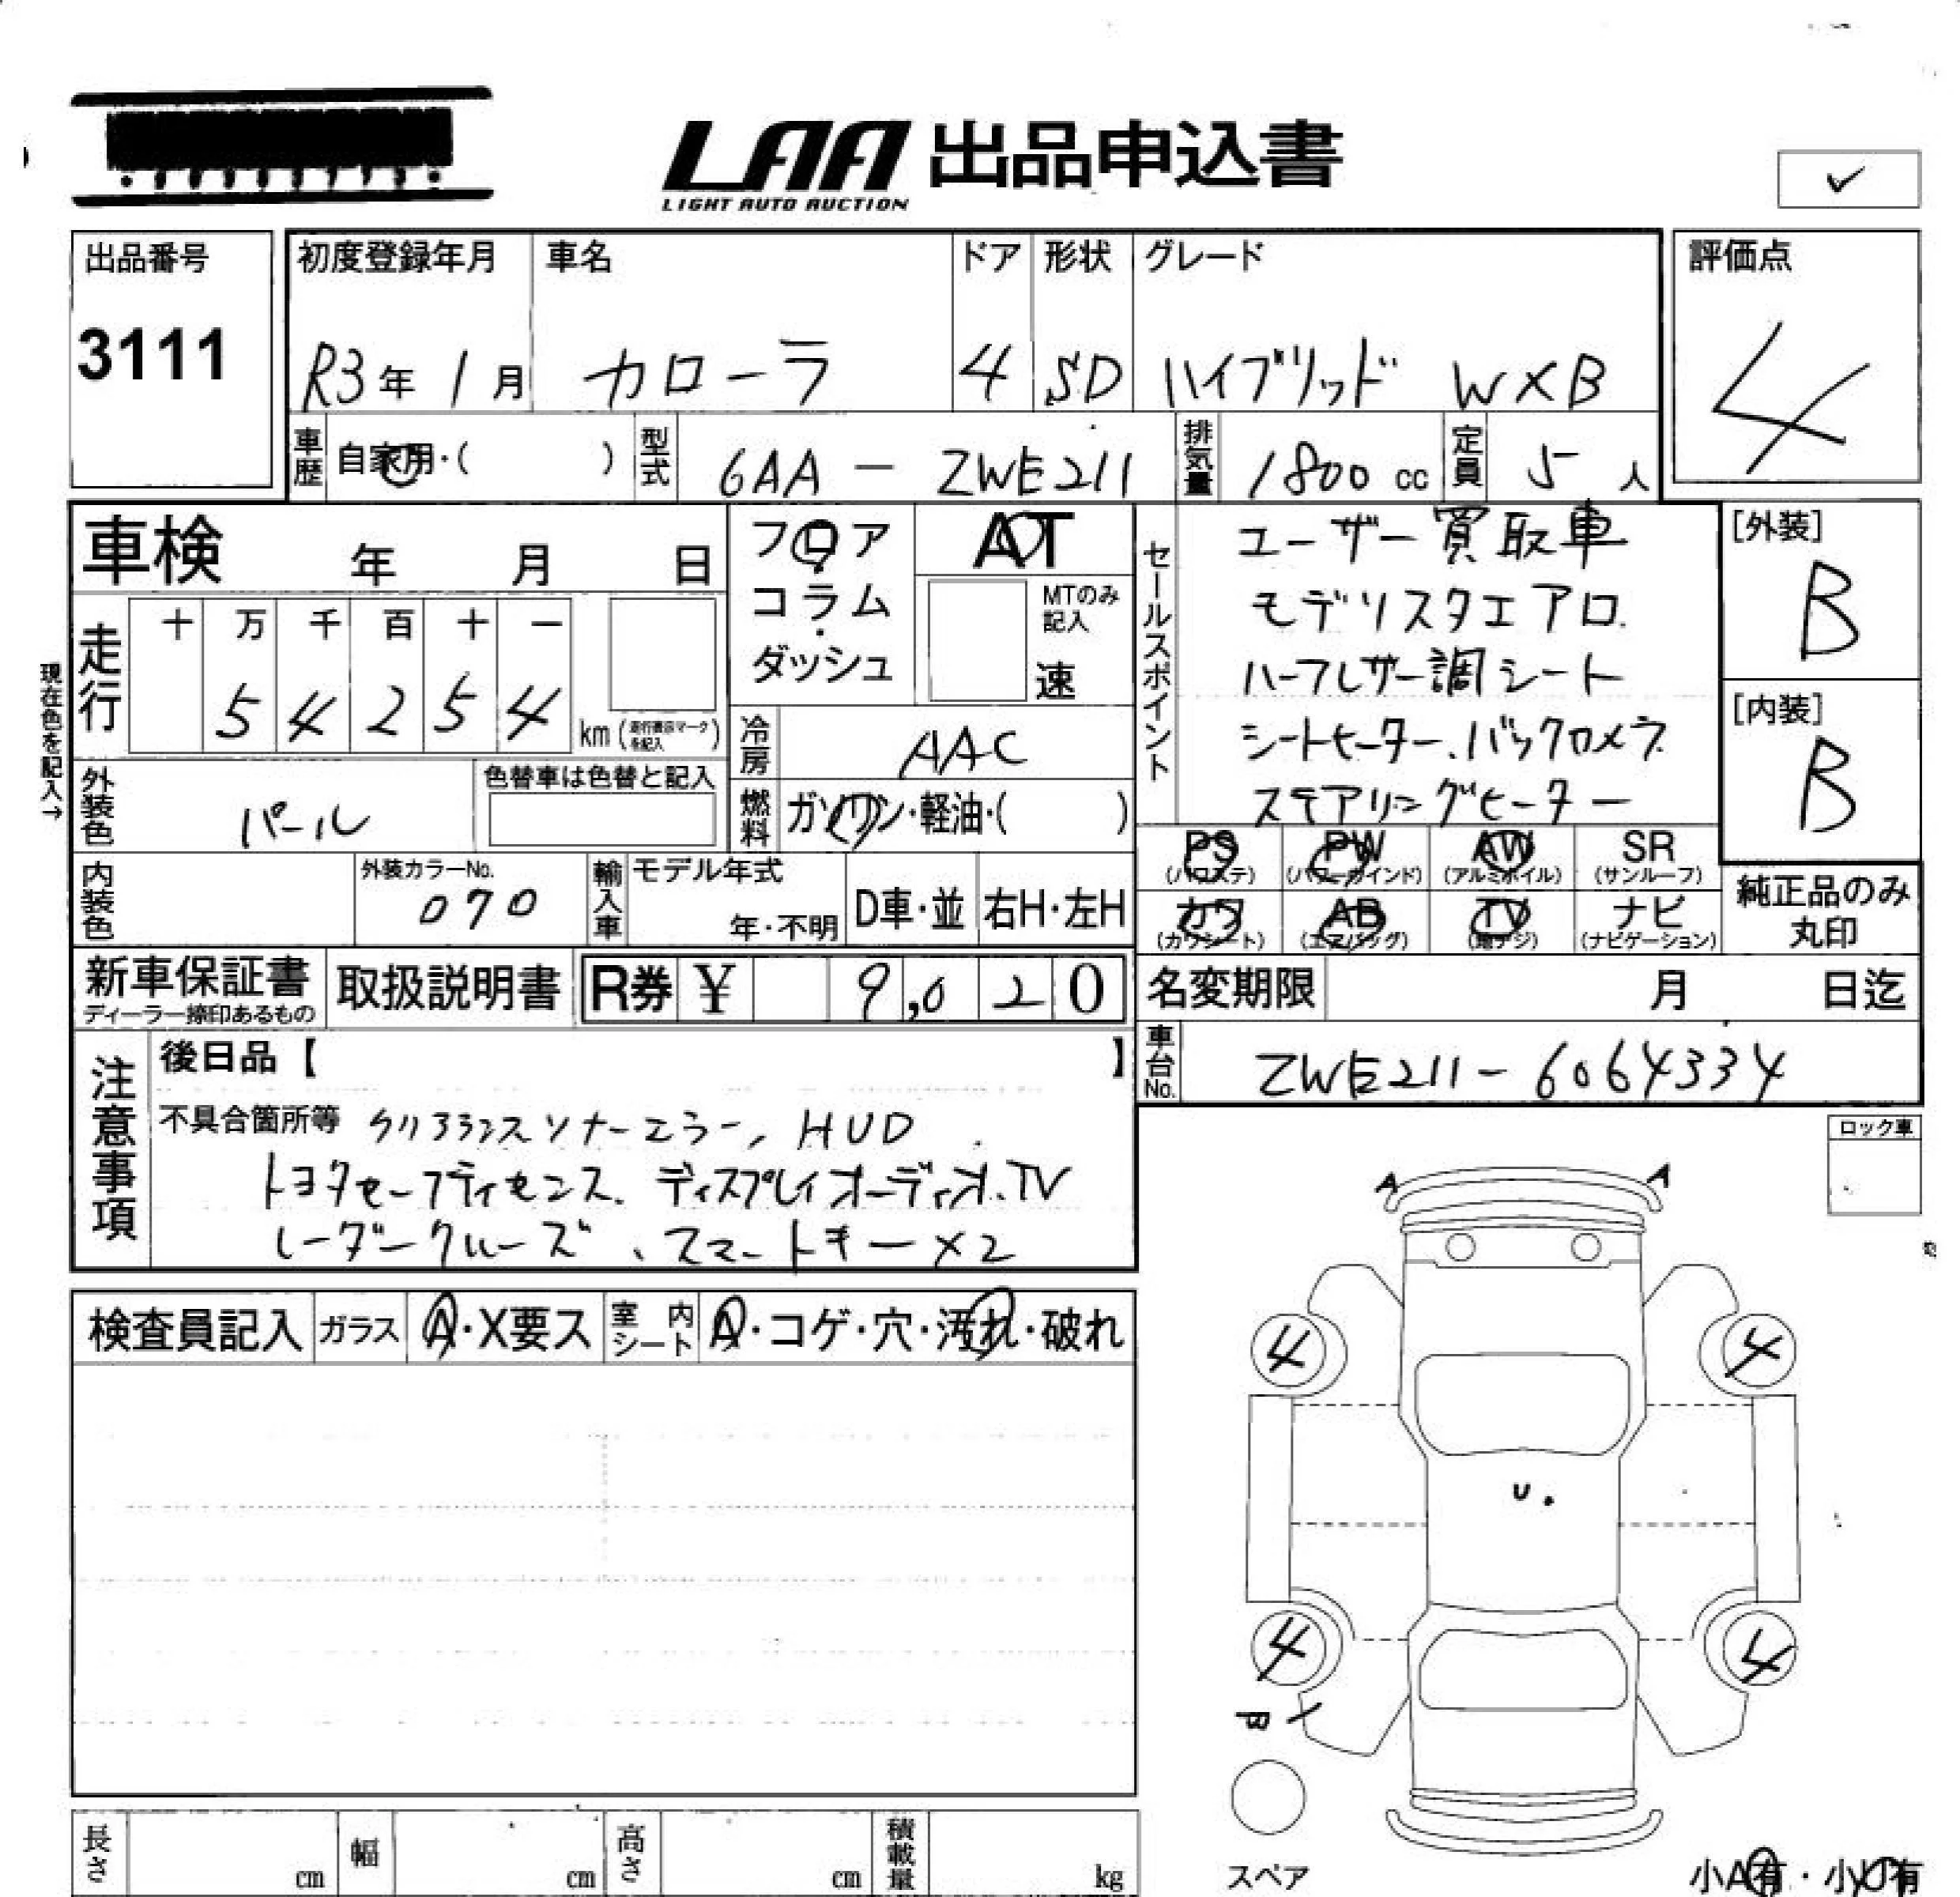 LAA 出品申込書
LIGHT AUTO AUCTION
✓
出品番号
3111
初度登録年月
R3年 1月
車名
カローラ
ドア
4
形状
SD
グレード
ハイブリッド WXB
評価点
4
車歴
自家用・( )
型式
6AA - ZWE211
排気量
1800 cc
定員
5 人
車検 年 月 日
現在色を記入→
走行
十 万 千 百 十 一
5 4 2 5 4 km
外装色
パール
色替車は色替と記入
フロア
コラム
ダッシュ
AT
MTのみ
記入
速
冷房
AAC
燃料
ガソリン・軽油・( )
セールスポイント
ユーザー買取車
モデリスタエアロ
ハーフレザー調シート
シートヒーター、バックカメラ
ステアリングヒーター
[外装]
B
[内装]
B
PS PW AW SR
(パワステ) (パワーウインド) (アルミホイル) (サンルーフ)
カワ AB TV ナビ
(カワシート) (エアバッグ) (地デジ) (ナビゲーション)
純正品のみ
丸印
内装色
外装カラーNo.
070
輸入車
モデル年式
年・不明
D車・並
右H・左H
新車保証書
ディーラー捺印あるもの
取扱説明書
R券 ¥ 9,020
名変期限 月 日迄
車台No.
ZWE211-6064334
注意事項
後日品【 】
不具合箇所等 クリアランスソナーエラー、HUD
トヨタセーフティセンス、ディスプレイオーディオ、TV
レーダークルーズ、スマートキー×2
ロック車
A A
検査員記入
ガラス
A・X要ス
室内シート
A・コゲ・穴・汚れ・破れ
4 4
U
4 4
スペア
小A有・小U有
長さ cm
幅 cm
高さ cm
積載量 kg